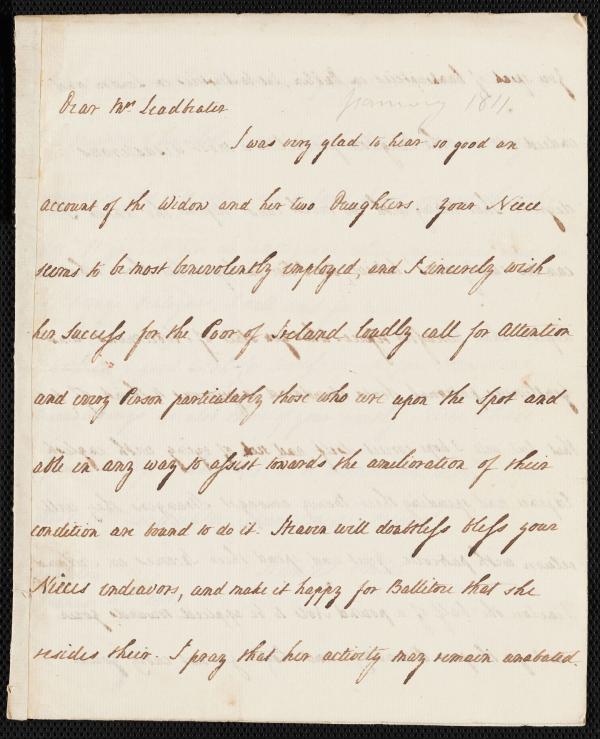 January 1811.
Dear Mrs Leadbeater
I was very glad to hear so good an
account of the Widow and her two Daughters. your Niece
seems to be most benevolently employed and I sincerely wish
her Success for the Poor of Ireland loudly call for Attention
and every Person particularly those who are upon the Spot and
able in any way to assist towards the amelioration of their
condition are bound to do it. Heaven will doubtless bless your
Nieces endeavors, and make it happy for Ballitore that she
resides their. I pray that her activity may remain unabated.